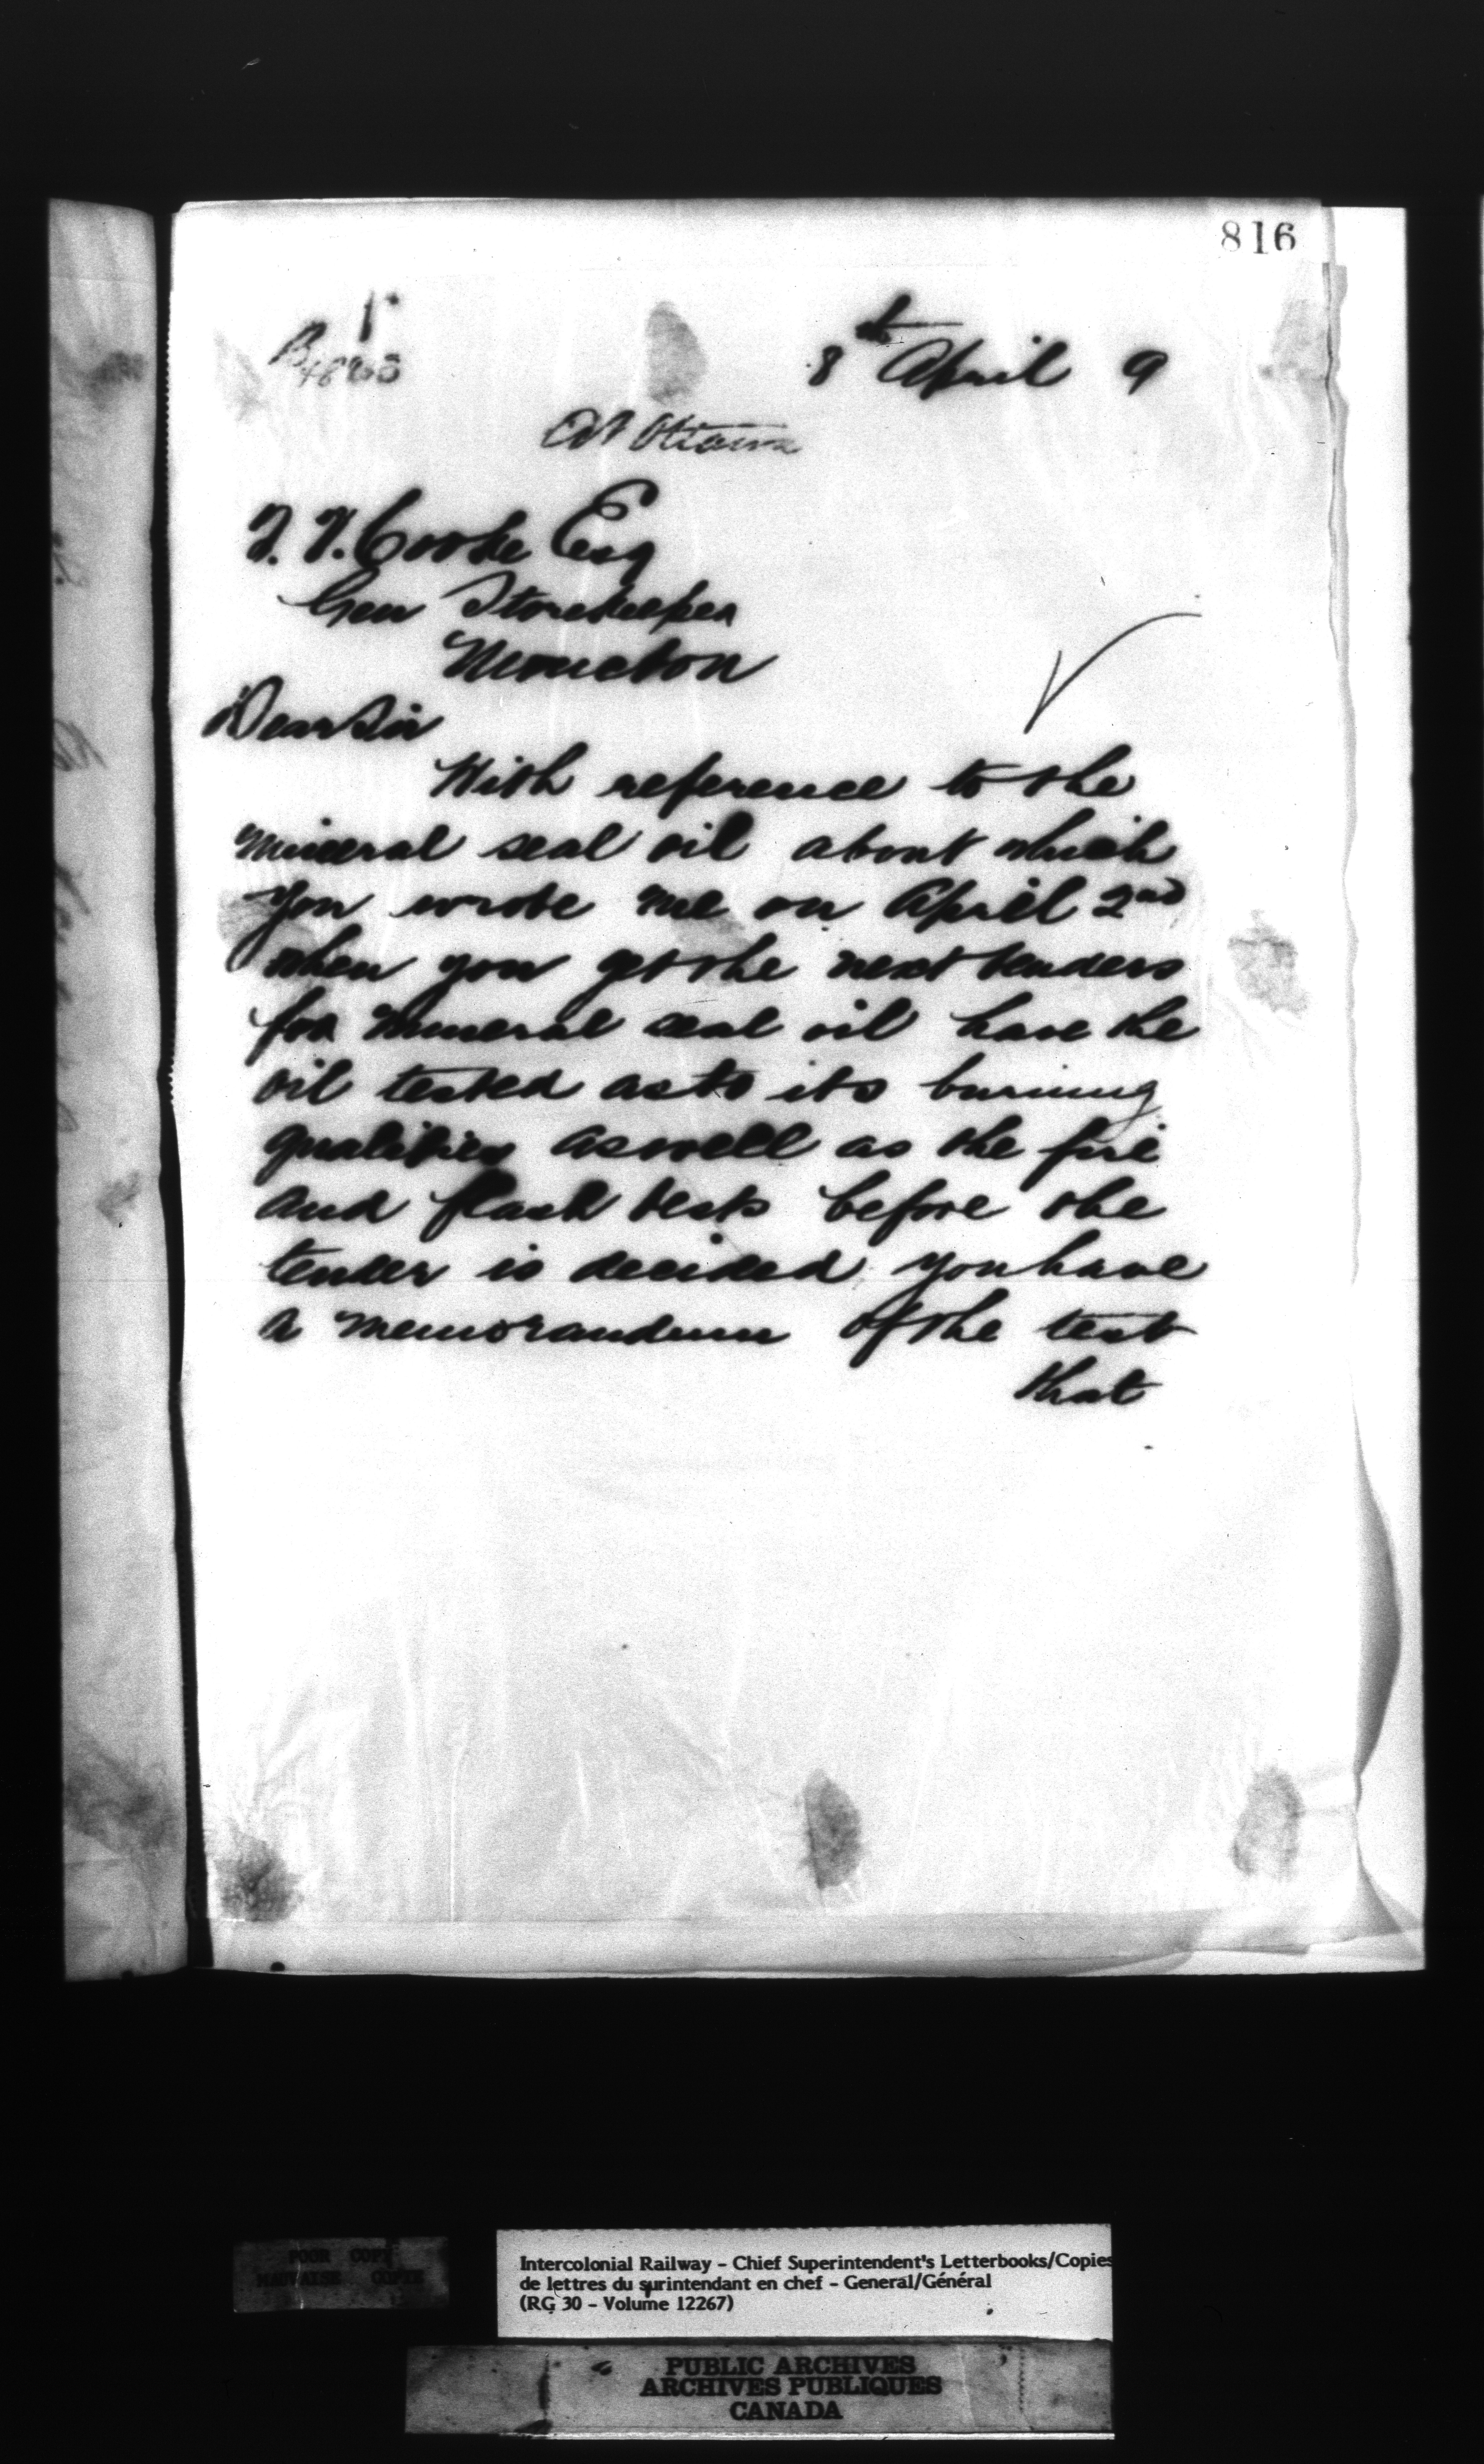 816
8th April 9
At Ottawa
T. V. Cooke Esq
Gen Storekeeper
Moncton
Dear Sir
With reference to the
mineral seal oil about which
you wrote me on April 2nd
when you get the next tenders
for mineral seal oil have the
oil tested as to its burning
qualities as well as the fire
and flash tests before the
tender is decided you have
a memorandum of the test
that
POOR COPY
MAUVAISE COPIE
Intercolonial Railway - Chief Superintendent's Letterbooks/Copies
de lettres du surintendant en chef - General/Général
(RG 30 - Volume 12267)
PUBLIC ARCHIVES
ARCHIVES PUBLIQUES
CANADA